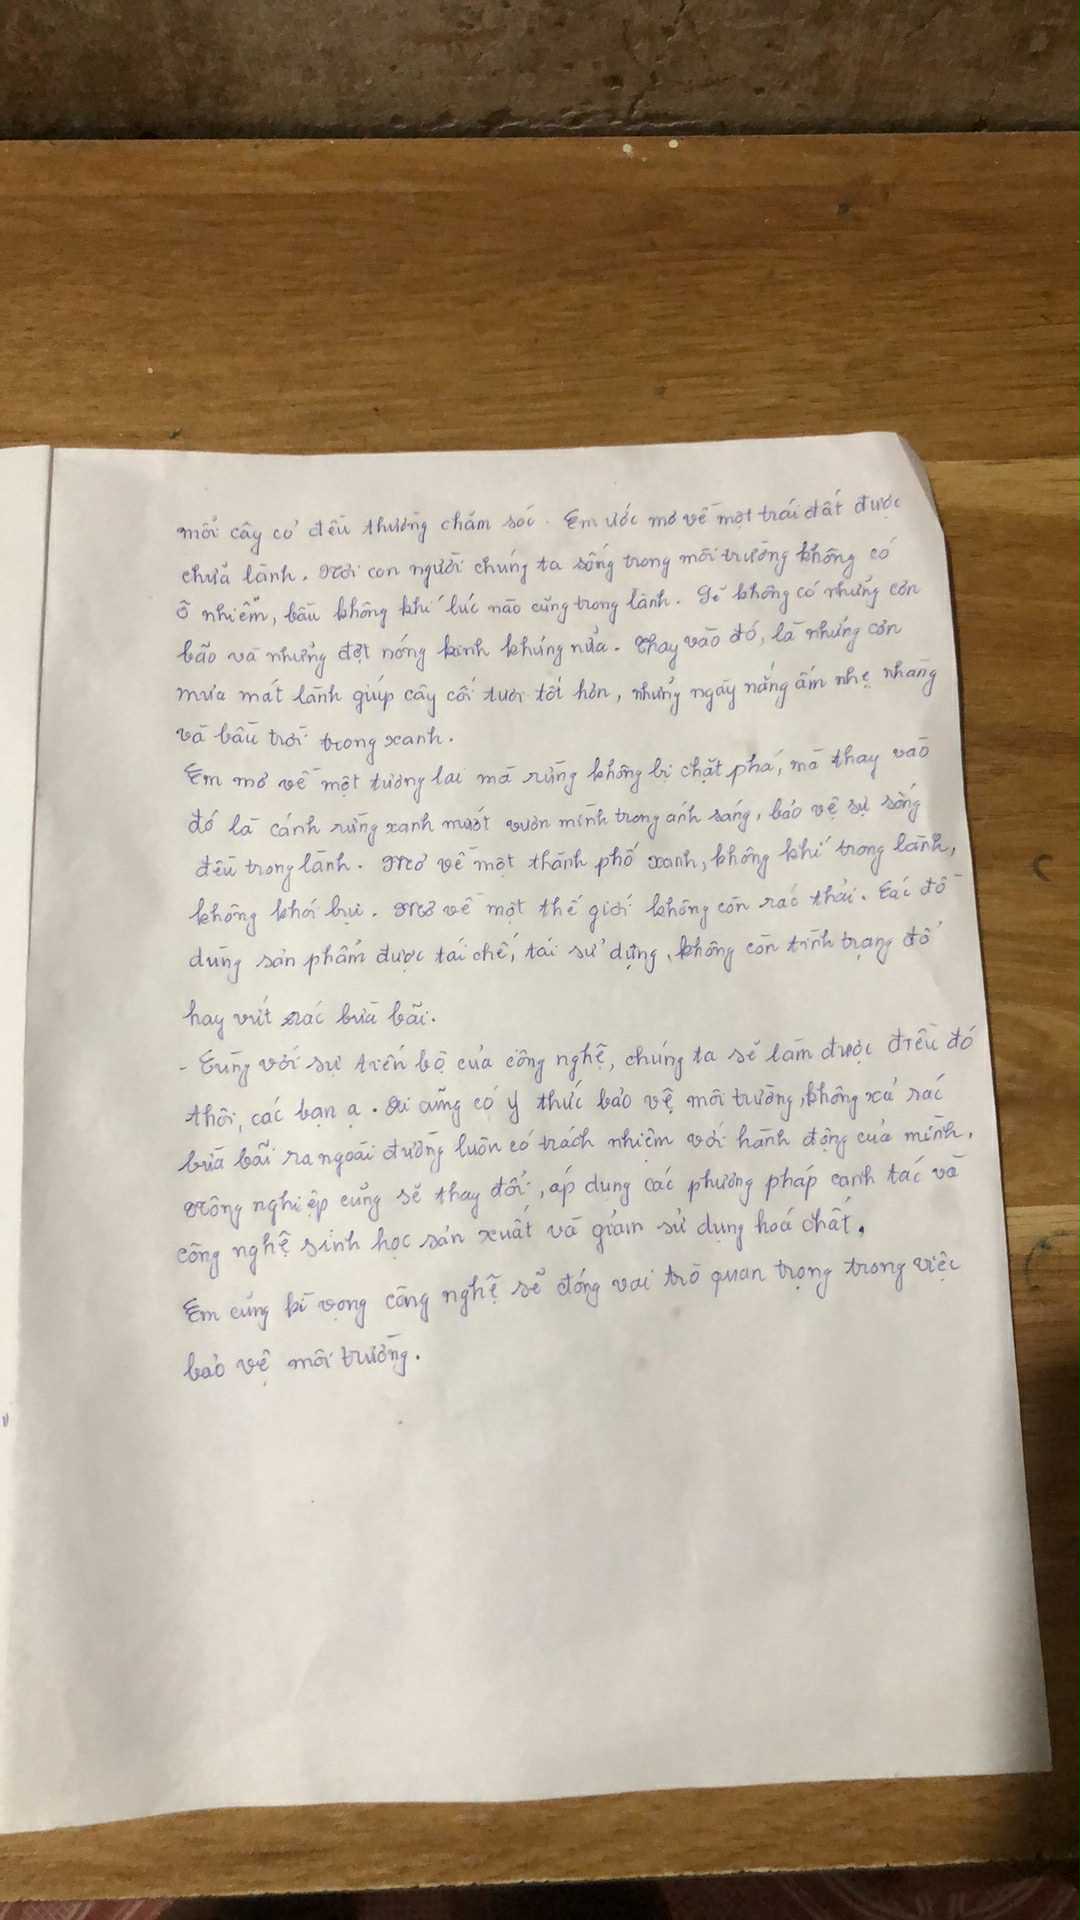 mỗi cây cỏ đều thường chăm sóc. Em ước mơ về một trái đất được
chữa lành. Nơi con người chúng ta sống trong môi trường không có
ô nhiễm, bầu không khí lúc nào cũng trong lành. Sẽ không có những cơn
bão và những đợt nóng kinh khủng nữa. Thay vào đó, là những cơn
mưa mát lành giúp cây cối tươi tốt hơn, những ngày nắng ấm nhẹ nhàng
và bầu trời trong xanh.
Em mơ về một tương lai mà rừng không bị chặt phá, mà thay vào
đó là cánh rừng xanh mướt vươn mình trong ánh sáng, bảo vệ sự sống
đều trong lành. Mơ về một thành phố xanh, không khí trong lành,
không khói bụi. Mơ về một thế giới không còn rác thải. Các đồ
dùng sản phẩm được tái chế, tái sử dụng, không còn tình trạng đổ
hay vứt rác bừa bãi.
- Cùng với sự tiến bộ của công nghệ, chúng ta sẽ làm được điều đó
thôi, các bạn ạ. Ai cũng có ý thức bảo vệ môi trường, không xả rác
bừa bãi ra ngoài đường luôn có trách nhiệm với hành động của mình.
Nông nghiệp cũng sẽ thay đổi, áp dụng các phương pháp canh tác và
công nghệ sinh học sản xuất và giảm sử dụng hoá chất.
Em cũng kì vọng công nghệ sẽ đóng vai trò quan trọng trong việc
bảo vệ môi trường.